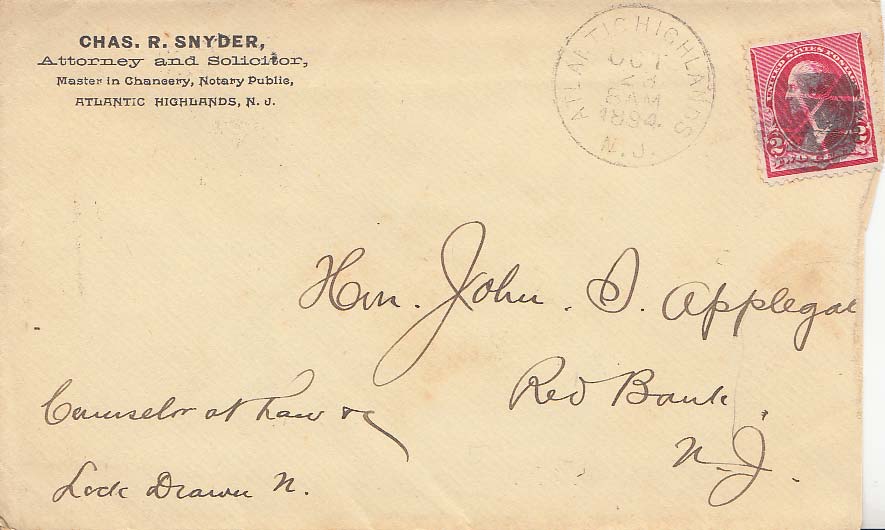 CHAS. R. SNYDER,
Attorney and Solicitor,
Master in Chancery, Notary Public,
ATLANTIC HIGHLANDS, N. J.
ATLANTIC HIGHLANDS
OCT
8 AM
1894.
N.J.
UNITED STATES POSTAGE
2 2
Hon. John S. Applegat
Red Bank.
N. J.
Counselor at Law &c
Lock Drawer N.